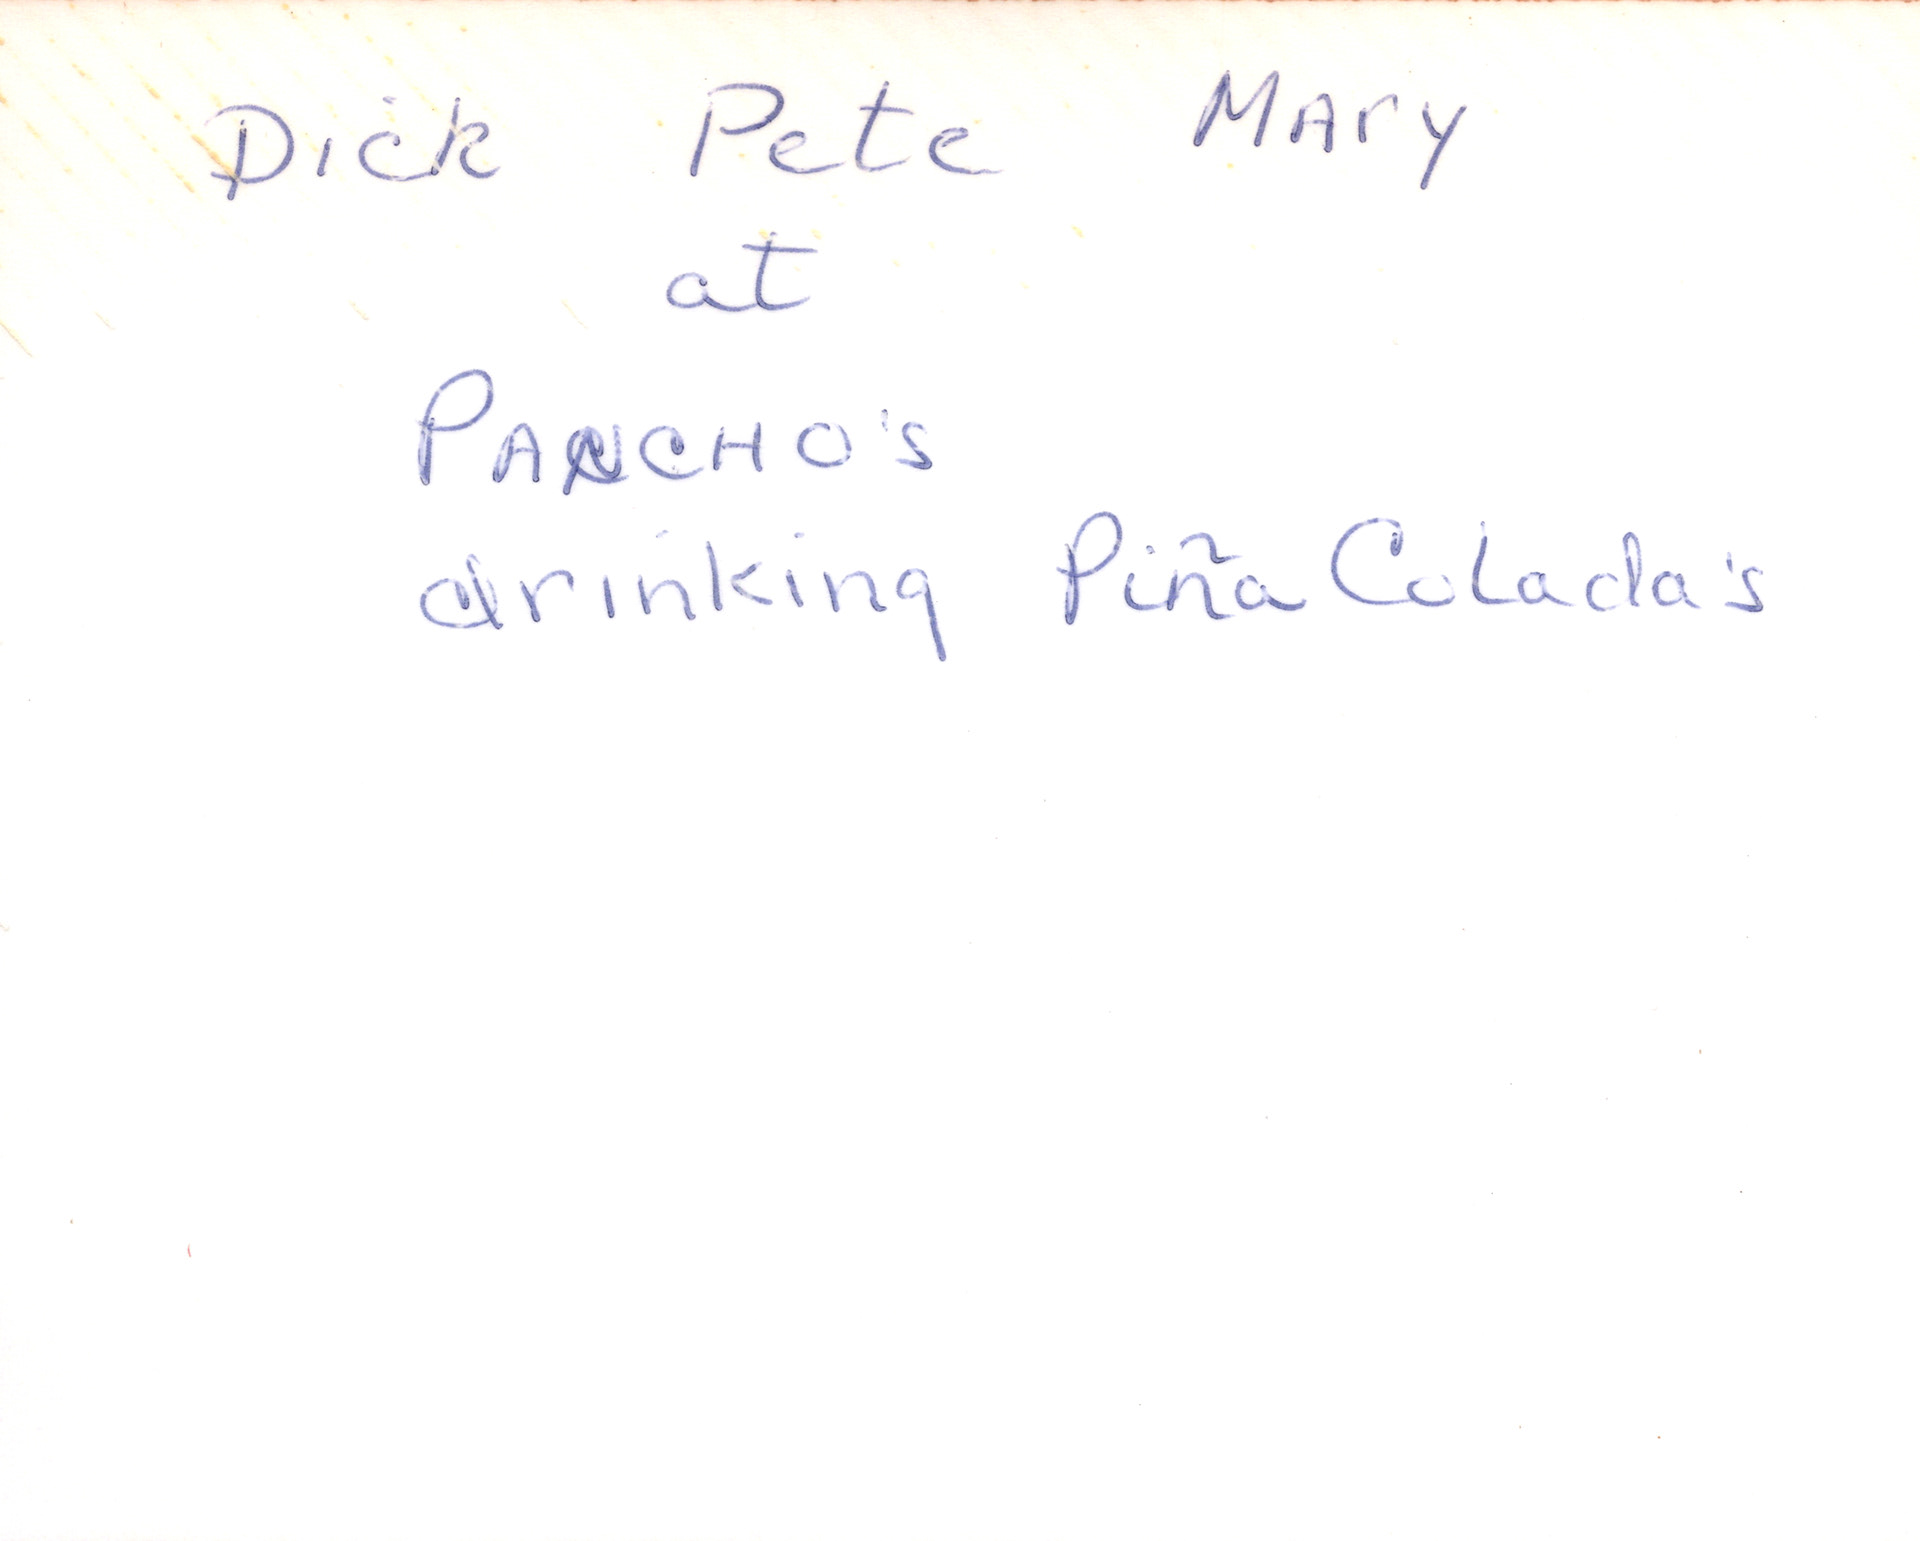 Dick Pete Mary
at
PANCHO's
drinking Piña Colada's